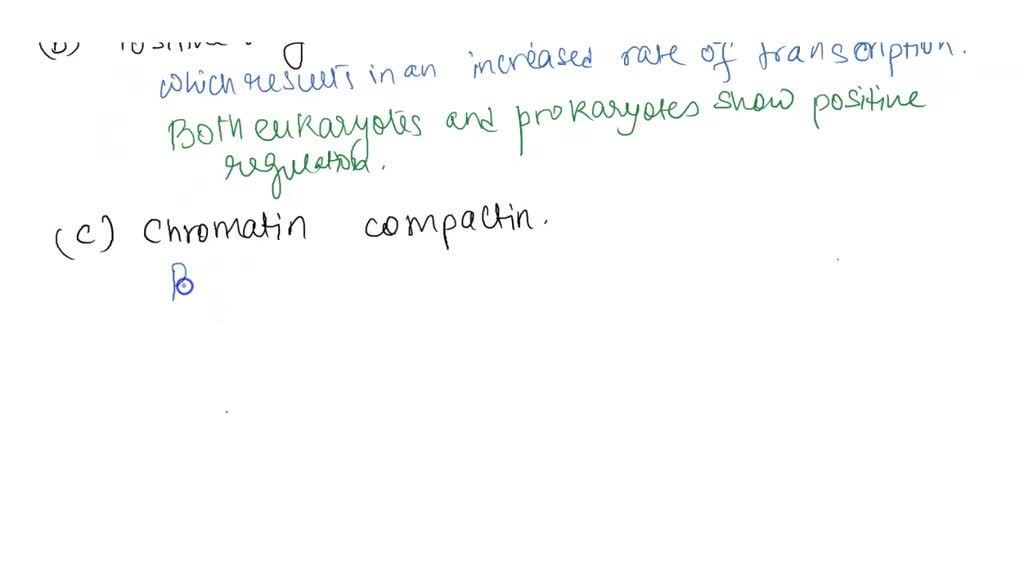 (b)
which results in an increased rate of transcription.
Both eukaryotes and prokaryotes show positive
regulation.
(c) Chromatin compactin.
B